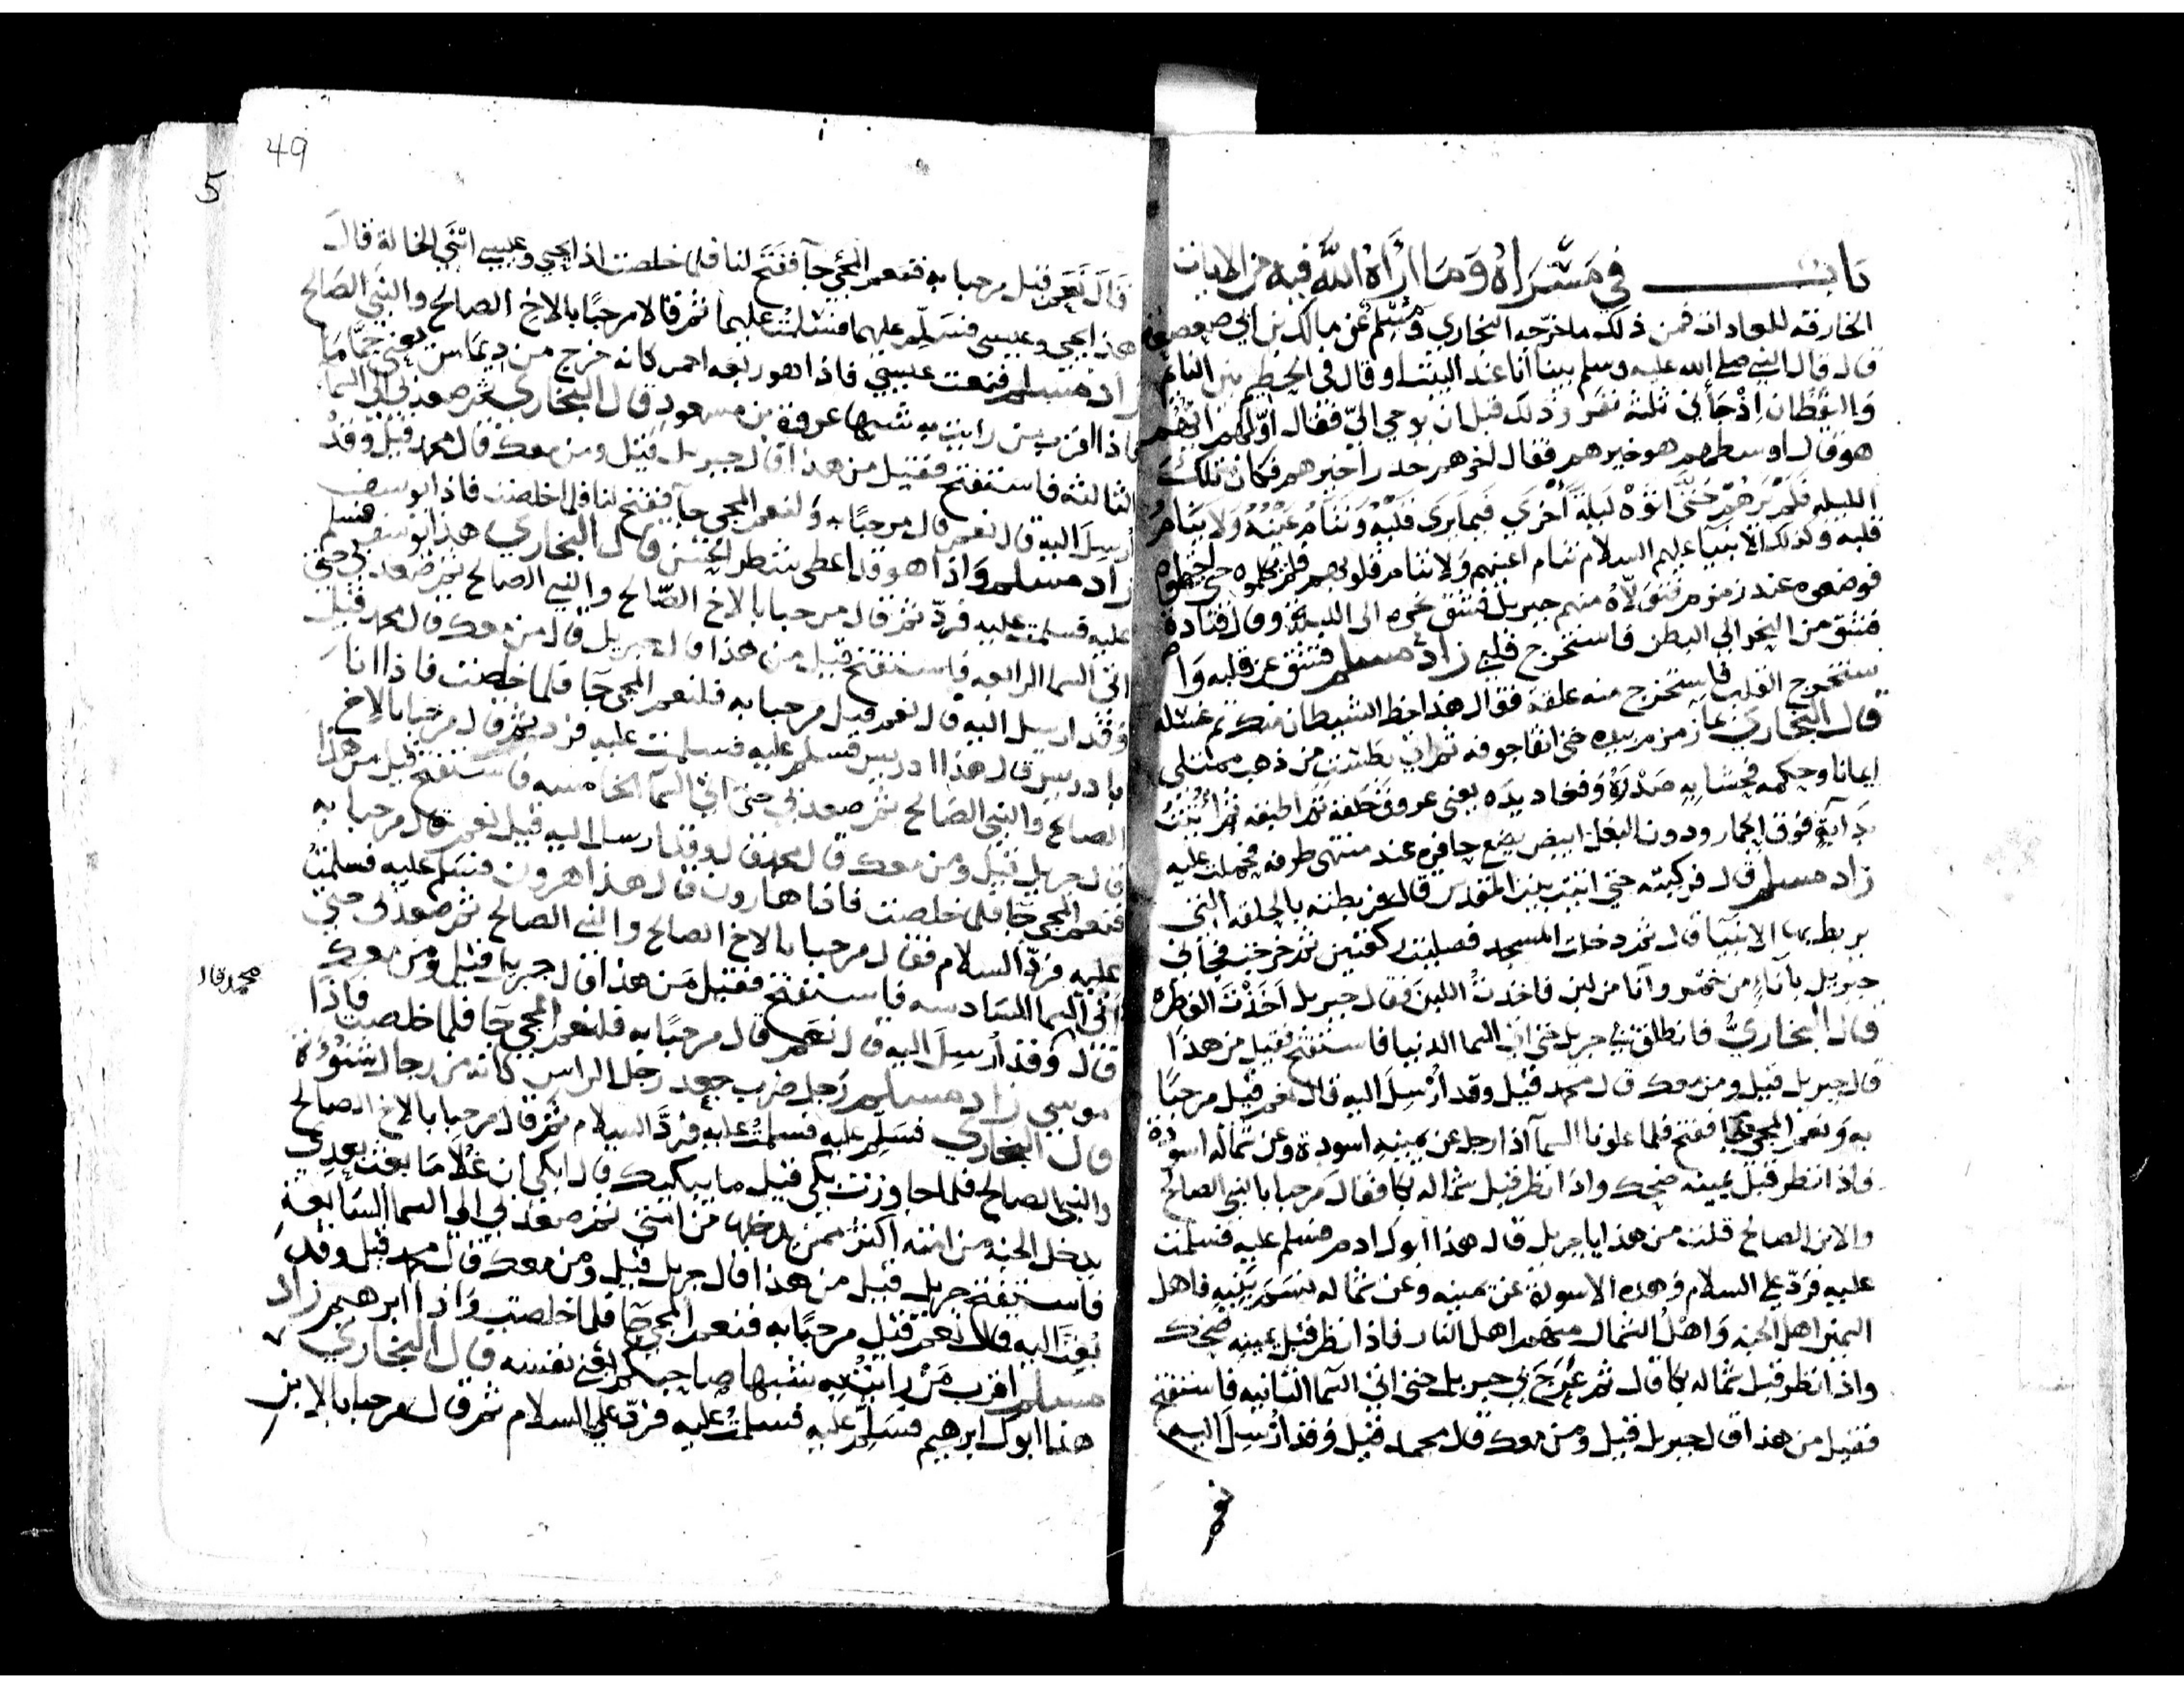 باب في مسراه وما أراه الله فيه من الايات
الخارقه للعادات فمن ذلك ما خرّجه البخاري ومسلم عن مالك بن ابي صعصعة
قال قال النبي صلى الله عليه وسلم بينا أنا عند البيت او قال في الحطيم بين النائم
واليقظان إذ جاني ثلثة نفر وذلك قبل ان يوحي اليّ فقال اوّلهم ايّهم
هو قال اوسطهم هو خيرهم فقال اخرهم خذوا خيرهم فكانت تلك
الليله فلم يرهم حتى اتوه ليلة أخري فيما يري قلبه وتنام عينه ولا ينام
قلبه وكذلك الانبيا عليهم السلام تنام اعينهم ولا تنام قلوبهم فلم يكلموه حتى احتملوه
فوضعوه عند زمزم فتولاه منهم جبريل فشق نحره الى اللبة وقال قتادة
فشق من النحر الي البطن فاستخرج قلبي زاد مسلم فشق عن قلبه وا
ستخرج القلب فاستخرج منه علقة فقال هذا حظ الشيطان منك ثم غسله
قال البخاري بما زمزم بيده حتى انقا جوفه ثم اتي بطست من ذهب ممتلي
ايمانا وحكمه فحشا به صدره ولغاديده يعني عروق حلقه ثم اطبقه ثم أتيت
بدابة فوق الحمار ودون البغل ابيض يضع حافره عند منتهى طرفه فحملت عليه
زاد مسلم قال فركبته حتى اتيت بيت المقدس قال فربطته بالحلقه التي
يربط بها الانبيا قال ثم دخلت المسجد فصليت ركعتين ثم خرجت فجأني
جبريل بأناء من خمر وأنا من لبن فاخذت اللبن فقال جبريل أخذت الفطره
قال البخاري فانطلق بي جبريل حتى اتى السما الدنيا فاستفتح فقيل من هذا
قال جبريل قيل ومن معك قال محمد قيل وقد أرسل اليه قال نعم قيل مرحبا
به ونعم المجي جا ففتح فلما علونا السمآ اذا رجل عن يمينه اسودة وعن شماله اسودة
فاذا نظر قبل يمينه ضحك واذا نظر قبل شماله بكا فقال مرحبا بالنبي الصالح
والابن الصالح قلت من هذا يا جبريل قال هذا ابوك ادم فسلم عليه فسلمت
عليه فردّ علي السلام وهذه الاسودة عن يمينه وعن شماله نسم بنيه فاهل
اليمين اهل الجنه واهل الشمال منهم اهل النار فاذا نظر قبل يمينه ضحك
واذا نظر قبل شماله بكا قال ثم عرج بي جبريل حتى اتى السما الثانيه فاستفتح
فقيل من هذا قال جبريل قيل ومن معك قال محمد قيل وقد أرسل اليه
49
5
قال نعم قيل مرحبا به فنعم المجي جآ ففتح لنا فلما خلصت اذا يحيي وعيسي ابني الخالة قال
هذا يحيي وعيسي فسلّم عليهما فسلمت عليهما ثم قالا مرحبًا بالاخ الصالح والنبي الصالح
زاد مسلم فنعت عيسي فاذا هو ربعه احمر كانه خرج من ديماس يعني حمّاما
فاذا اقرب من رايت به شبها عروة بن مسعود قال البخاري ثم صعد بي الى السما
الثالثه فاستفتح فقيل من هذا قال جبريل قيل ومن معك قال محمد قيل وقد
أرسل اليه قال نعم قال مرحبًا به ولنعم المجي جآ ففتح لنا فلما خلصت فاذا يوسف
زاد مسلم واذا هو قد اعطي شطر الحسن قال البخاري هذا يوسف فسلم
عليه فسلمت عليه فردّ ثم قال مرحبا بالاخ الصّالح والنبي الصالح ثم صعد بي حتى
اتى السما الرابعه فاستفتح قيل من هذا قال جبريل قال من معك قال محمد قيل
وقد ارسل اليه قال نعم قيل مرحبا به فلنعم المجي جآ فلما خلصت فاذا انا
بادريس قال هذا ادريس فسلم عليه فسلمت عليه فرد ثم قال مرحبا بالاخ
الصالح والنبي الصّالح ثم صعد بي حتى اتى السمآ الخامسه فاستفتح قيل من هذا
قال جبريل قيل ومن معك قال محمد قال وقد ارسل اليه قيل نعم قال مرحبا به
فنعم المجي جآ فلما خلصت فاذا هارون قال هذا هرون فسلم عليه فسلمت
عليه فردّ السلام فقال مرحبا بالاخ الصالح والنبي الصالح ثم صعد بي حتى
اتى السما السادسه فاستفتح فقيل من هذا قال جبريل قيل ومن معك
محمد قال
قال وقد أرسل اليه قال نعم قال مرحبًا به فلنعم المجي جآ فلما خلصت فاذا
موسي زاد مسلم رجل ضرب جعد رجل الراس كانه من رجال شنوءة
قال البخاري فسلم عليه فسلمت عليه فردّ السلام ثم قال مرحبا بالاخ الصالح
والنبي الصالح فلما جاوزت بكى قيل ما يبكيك قال ابكي ان غلاما بعث بعدي
يدخل الجنه من امته أكثر ممن يدخلها من امتي ثم صعد بي الى السما السابعة
فاستفتح جبريل قيل من هذا قال جبريل قيل ومن معك قال محمد قيل وقد
بعث اليه قال نعم قيل مرحبًا به فنعم المجي جآ فلما خلصت واذا ابرهيم زاد
مسلم اقرب من رايت به شبها صاحبكم يعني نفسه قال البخاري
هذا ابوك ابرهيم فسلّم عليه فسلمت عليه فردّ علي السلام ثم قال مرحبا بالابن